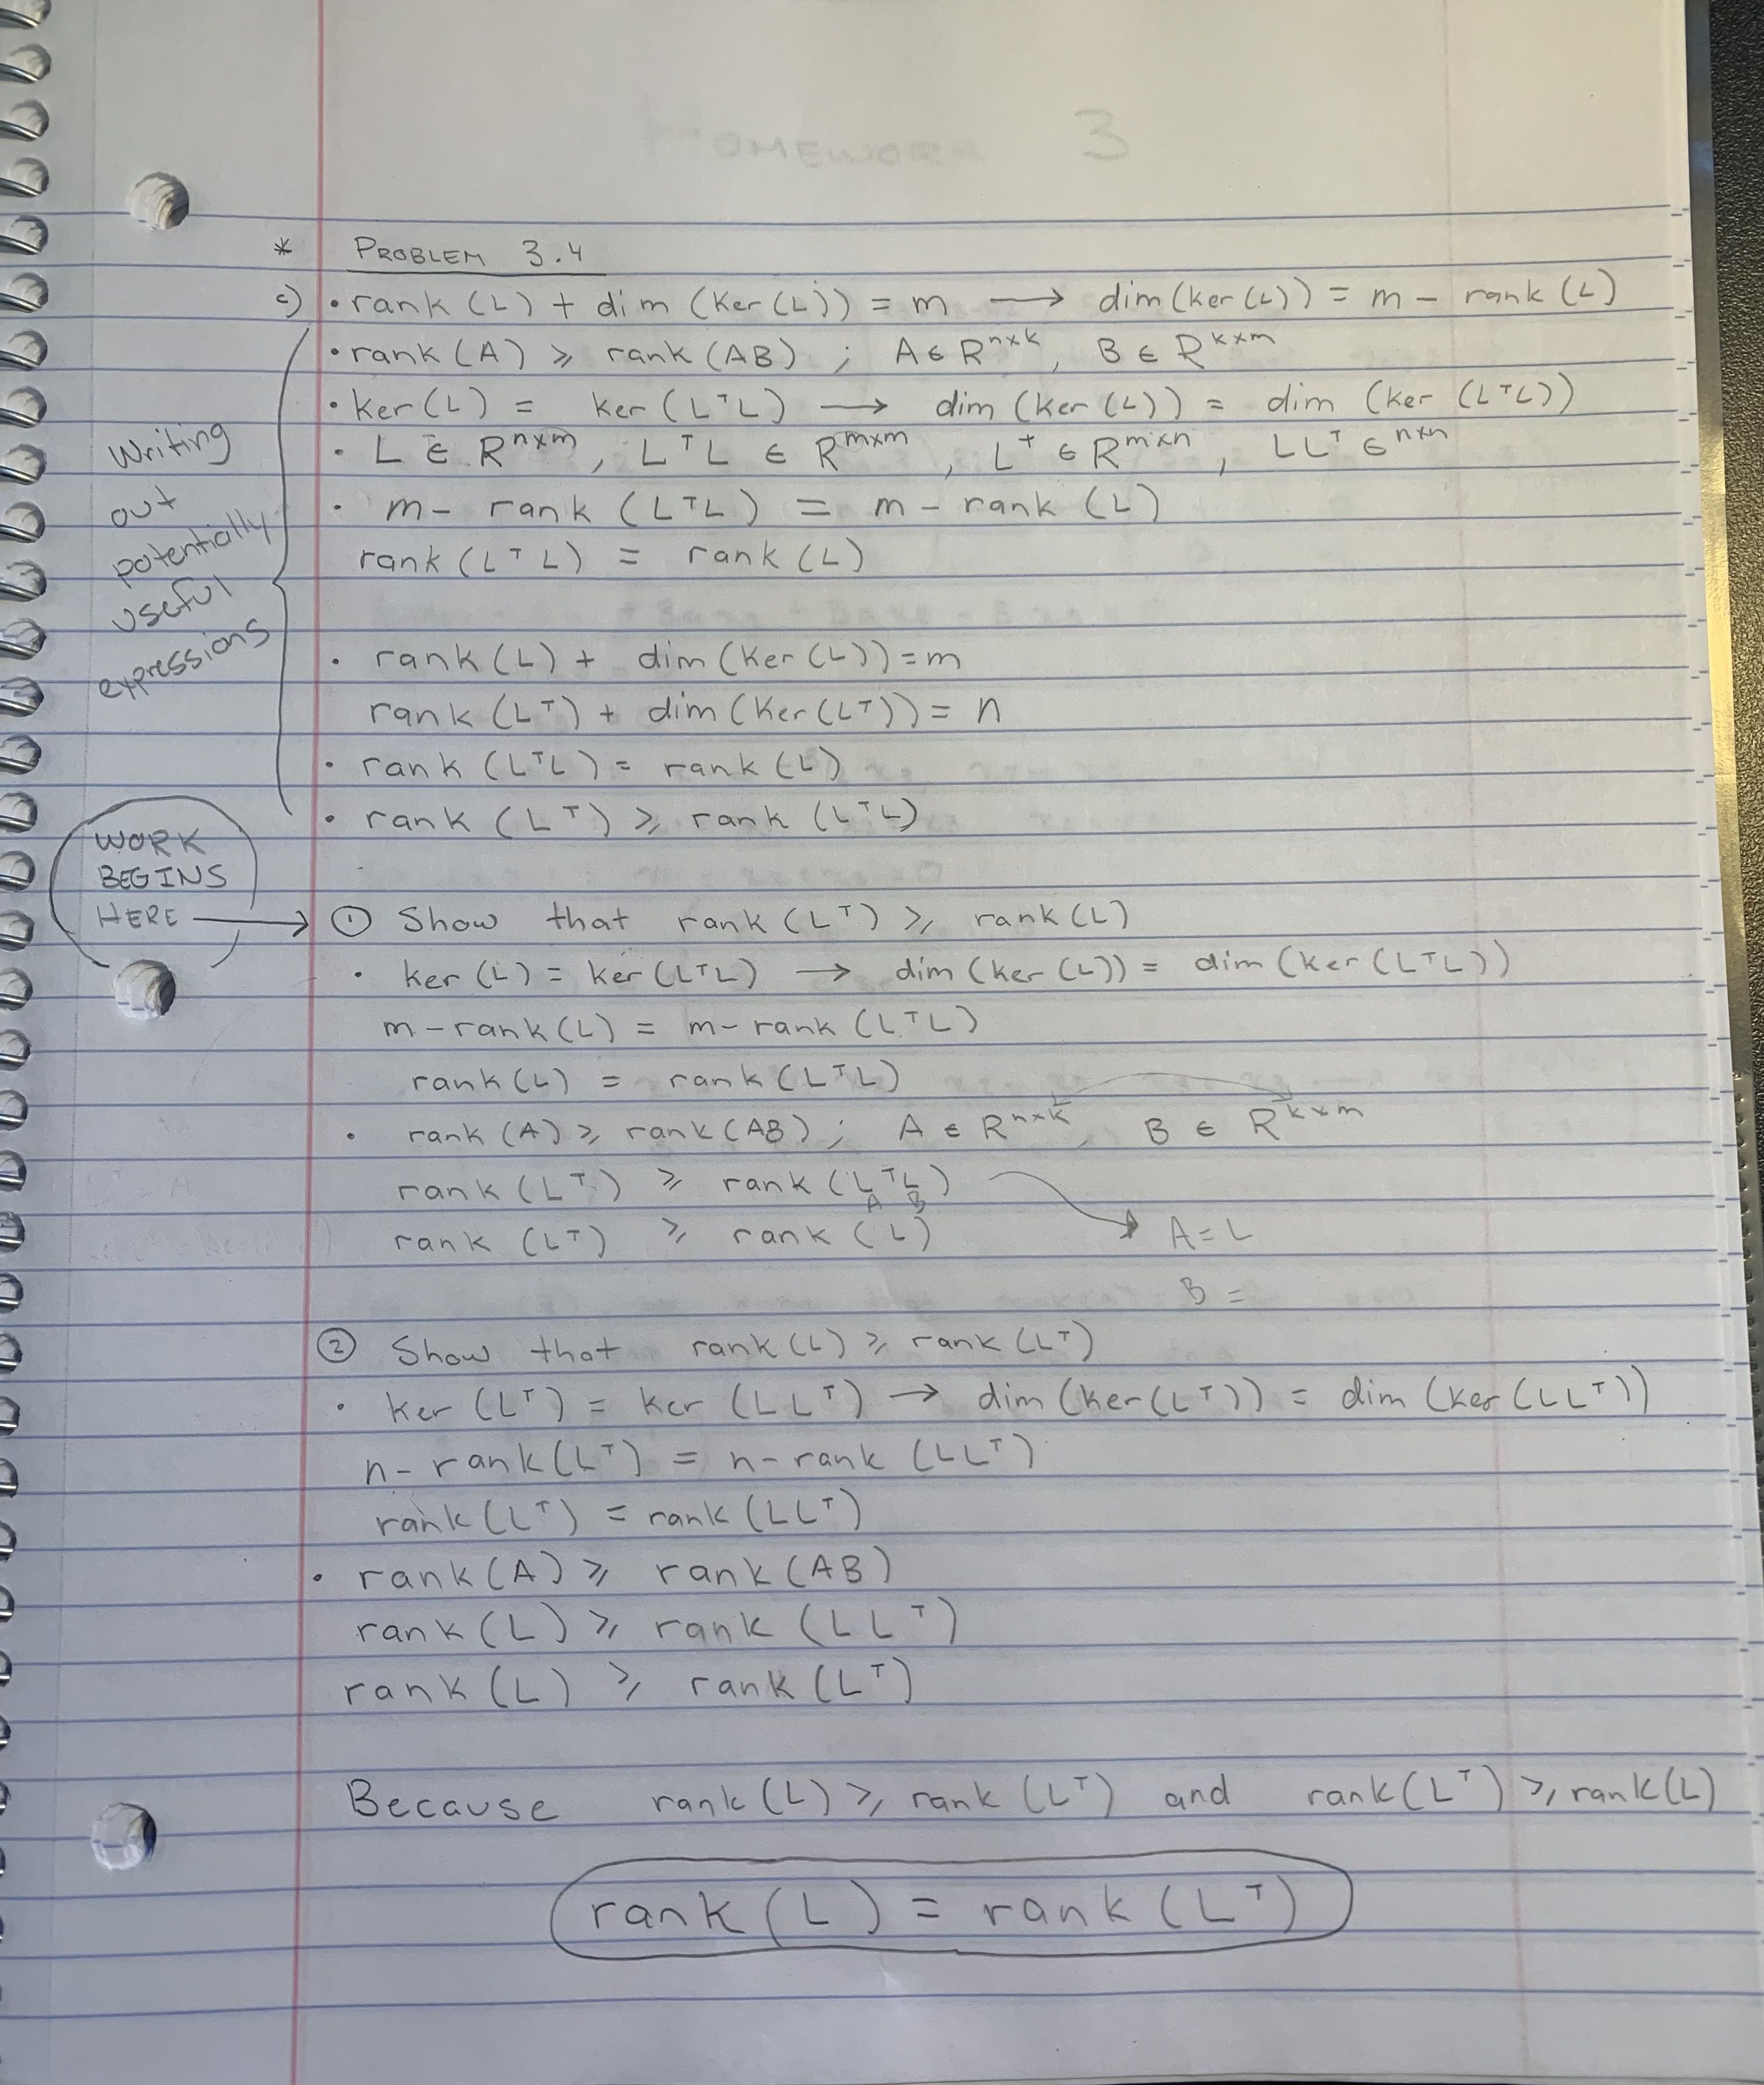 HOMEWORK 3
* PROBLEM 3.4
c) • rank (L) + dim (Ker(L)) = m → dim(ker(L)) = m - rank (L)
• rank (A) ⩾ rank (AB) ; A ∈ R^{n×k}, B ∈ R^{k×m}
• ker(L) = ker(LᵀL) → dim (ker(L)) = dim (ker (LᵀL))
• L ∈ R^{n×m}, LᵀL ∈ R^{m×m}, Lᵀ ∈ R^{m×n}, LLᵀ ∈^{n×n}
• m - rank (LᵀL) = m - rank (L)
rank (LᵀL) = rank (L)
Writing
out
potentially
useful
expressions
• rank (L) + dim (Ker(L)) = m
rank (Lᵀ) + dim (Ker(Lᵀ)) = n
• rank (LᵀL) = rank (L)
• rank (Lᵀ) ⩾ rank (LᵀL)
WORK
BEGINS
HERE →
① Show that rank (Lᵀ) ⩾ rank(L)
• ker (L) = ker(LᵀL) → dim (ker (L)) = dim (ker (LᵀL))
m - rank(L) = m - rank (LᵀL)
rank(L) = rank (LᵀL)
• rank (A) ⩾ rank(AB) ; A ∈ R^{n×k}, B ∈ R^{k×m}
rank (Lᵀ) ⩾ rank (LᵀL)
A B
rank (Lᵀ) ⩾ rank (L)
A = L
B =
② Show that rank(L) ⩾ rank (Lᵀ)
• ker (Lᵀ) = ker (LLᵀ) → dim (ker(Lᵀ)) = dim (ker (LLᵀ))
n - rank(Lᵀ) = n - rank (LLᵀ)
rank(Lᵀ) = rank (LLᵀ)
• rank(A) ⩾ rank (AB)
rank(L) ⩾ rank (LLᵀ)
rank(L) ⩾ rank (Lᵀ)
Because rank (L) ⩾ rank (Lᵀ) and rank(Lᵀ) ⩾ rank(L)
rank (L) = rank (Lᵀ)